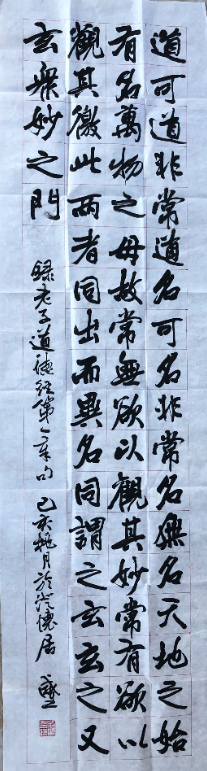 道可道非常道名可名非常名無名天地之始
有名萬物之母故常無欲以觀其妙常有欲以
觀其徼此兩者同出而異名同謂之玄玄之又
玄衆妙之門
錄老子道德經第一章句 己亥桃月於澄懷居